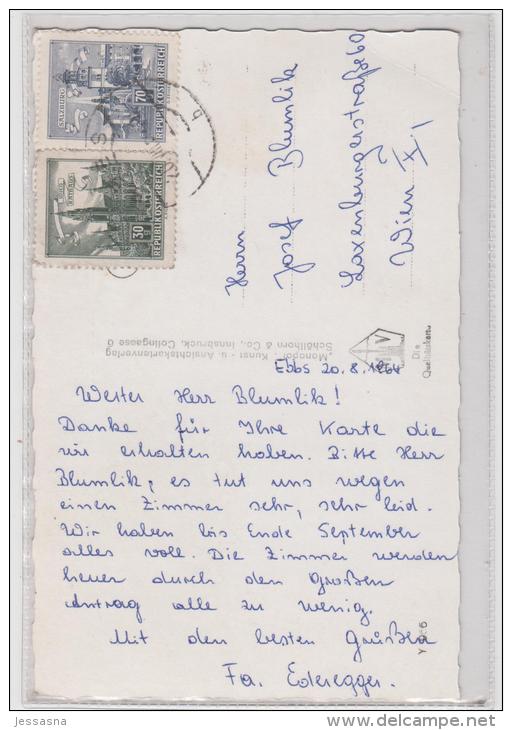 SALZBURG
70
REPUBLIK OSTERREICH
30
REPUBLIK ÖSTERREICH
Herrn
Josef Blumlik
Laxenburgerstraße 60
Wien X.
Die
Quelhäuskarte
"Monopol", Kunst - u. Ansichtskartenverlag
Schöllhorn & Co., Innsbruck, Colingasse
Ebbs 20.8.1964
Werter Herr Blumlik!
Danke für Ihre Karte die
wir erhalten haben. Bitte Herr
Blumlik, es tut uns wegen
einen Zimmer sehr, sehr leid.
Wir haben bis Ende September
alles voll. Die Zimmer werden
heuer durch den Großen
Antrag alle zu wenig.
Mit den besten Grüßen
Fa. Ederegger.
jessasna
www.delcampe.net